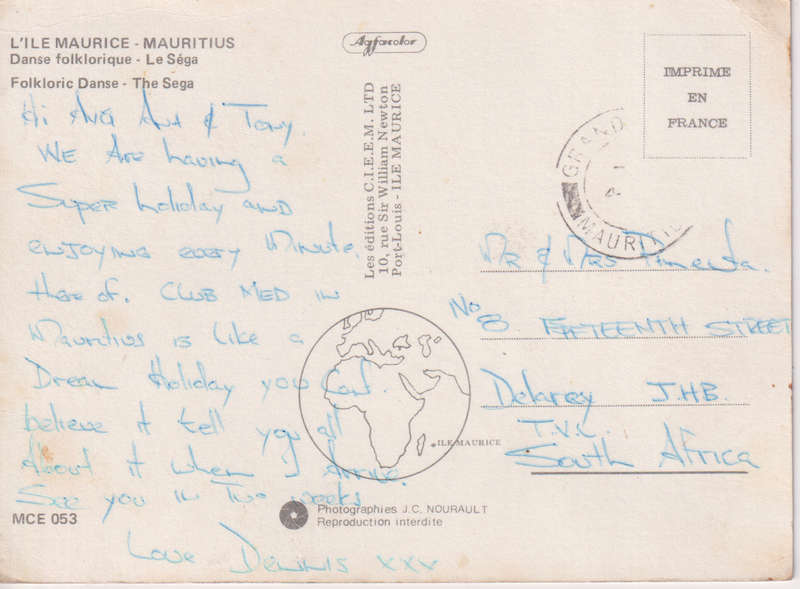 L'ILE MAURICE - MAURITIUS
Danse folklorique - Le Séga
Folkloric Danse - The Sega
Hi And Ana & Tony.
WE Are having a
Super holiday AND
ENJOYING EVERY Minute
there of. CLUB MED IN
Mauritius is Like a
Dream Holiday you Cant
believe it tell you all
About it when I Arrive.
See you in Two weeks
Love DENNIS xxx
MCE 053
Agfacolor
Les éditions C.I.E.E.M. LTD
10, rue Sir William Newton
Port-Louis - ILE MAURICE
IMPRIME
EN
FRANCE
GRAND
MAURITIU
MR & MRS Pimenta.
No 8 FIFTEENTH STREET
Delarey J.H.B.
T.V.L.
South Africa
ILE MAURICE
Photographies J.C. NOURAULT
Reproduction interdite